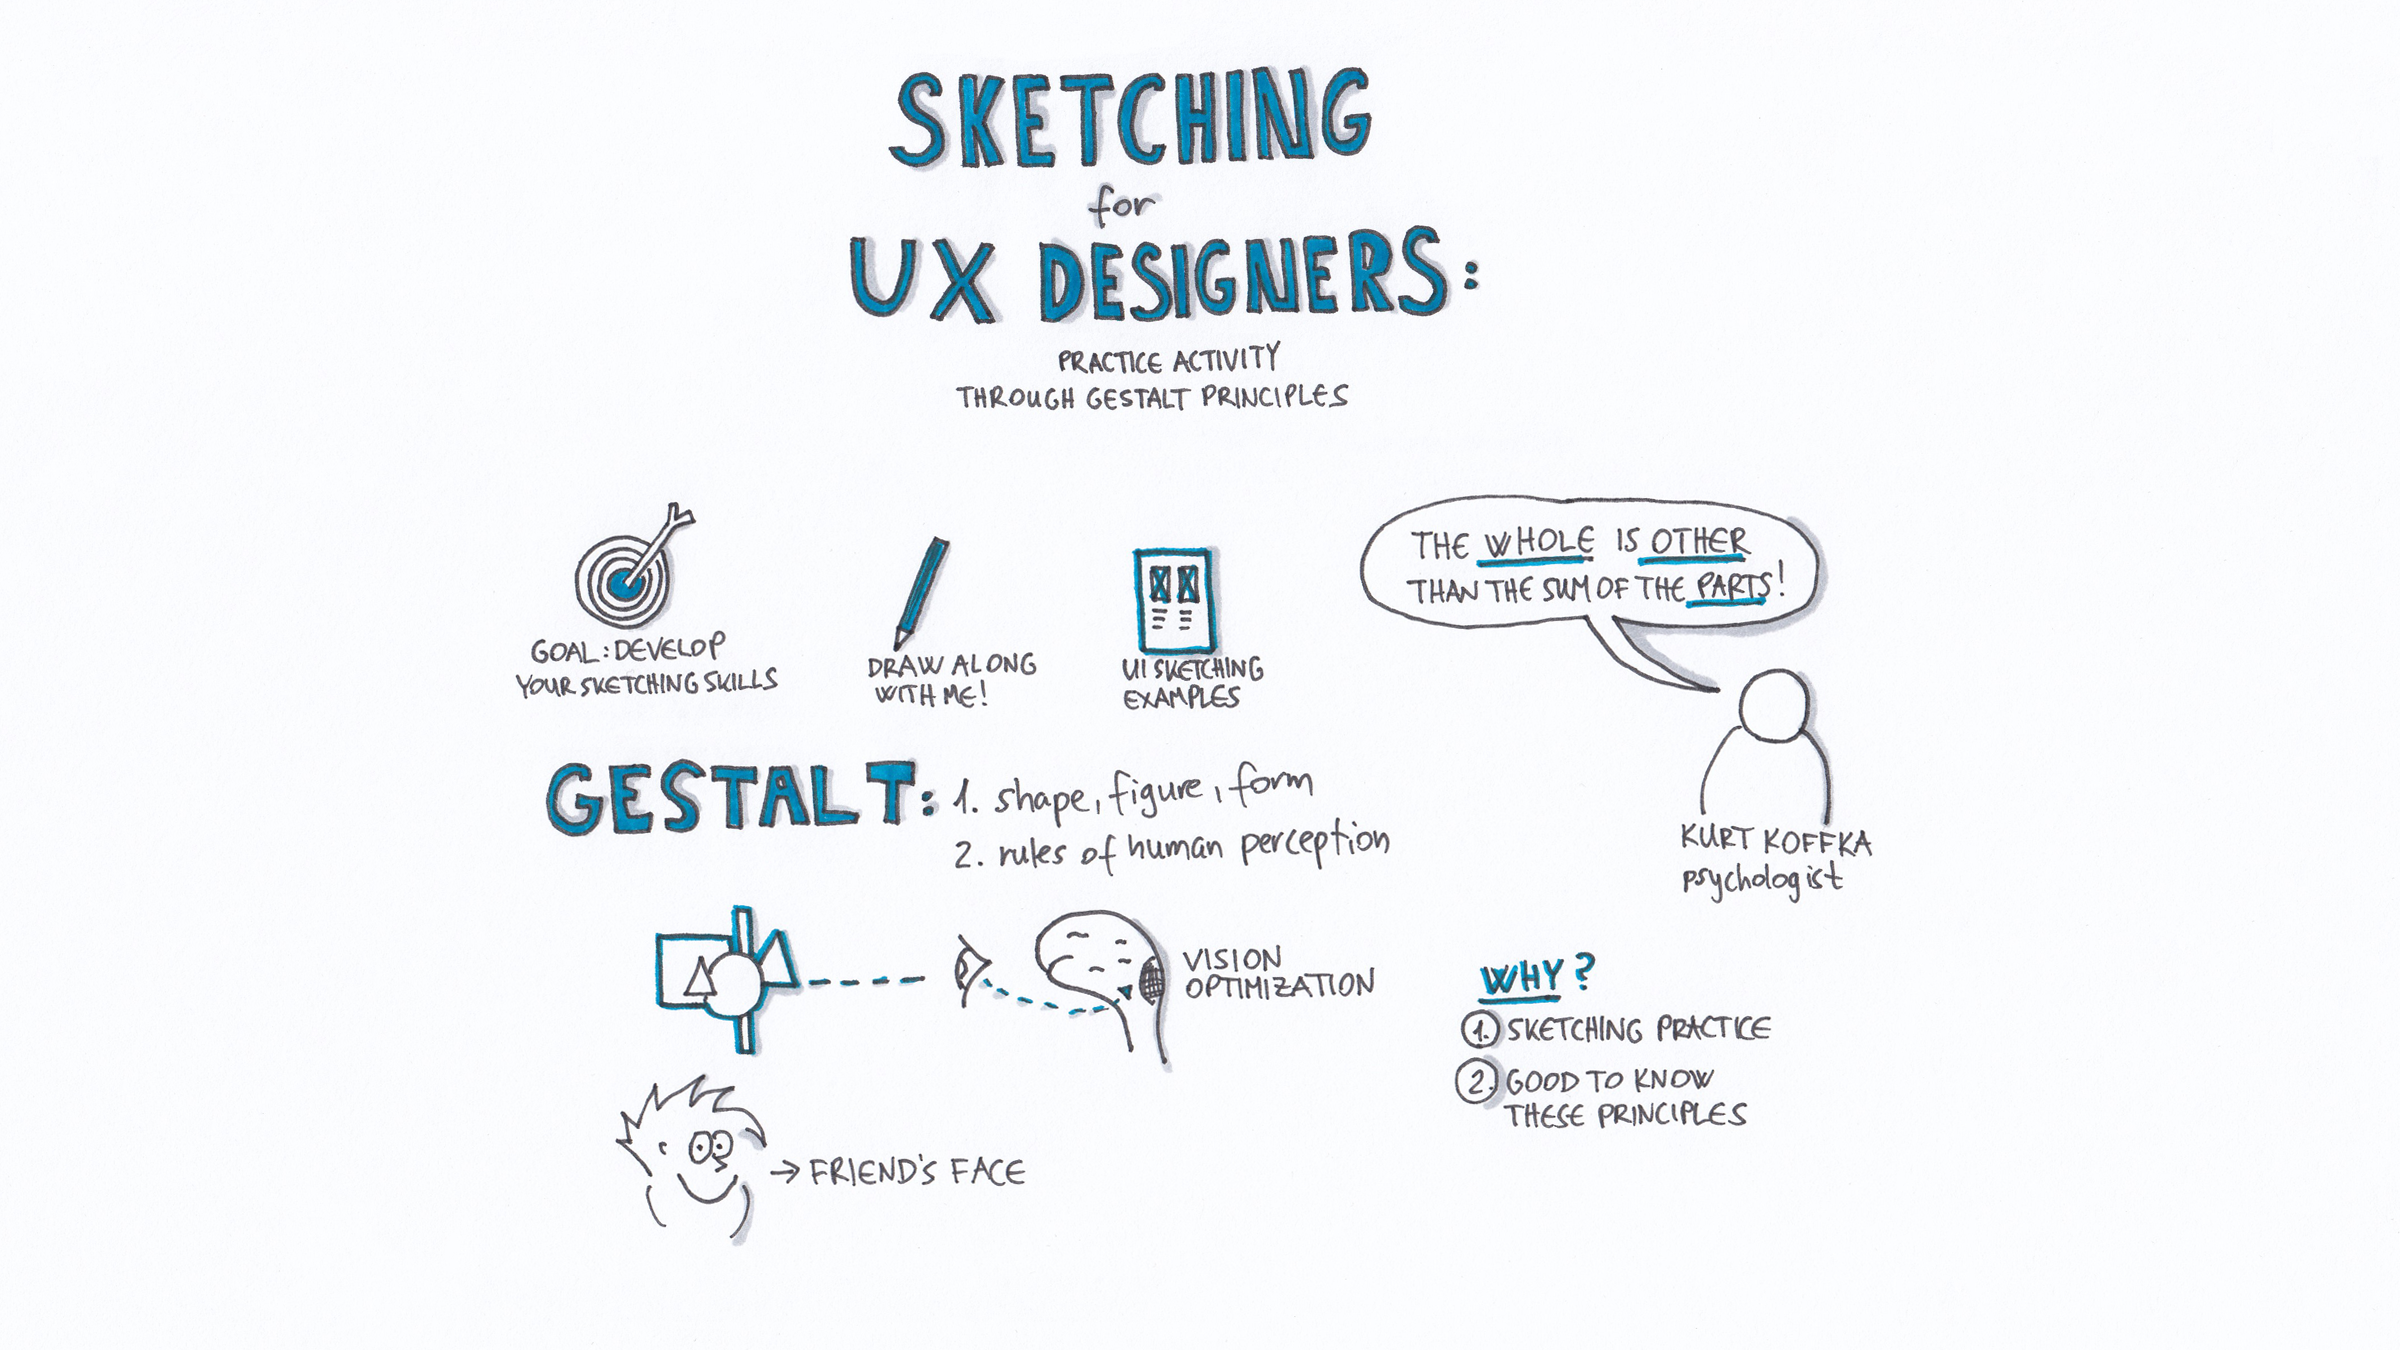 SKETCHING
for
UX DESIGNERS:
PRACTICE ACTIVITY
THROUGH GESTALT PRINCIPLES
GOAL: DEVELOP
YOUR SKETCHING SKILLS
DRAW ALONG
WITH ME!
UI SKETCHING
EXAMPLES
THE WHOLE IS OTHER
THAN THE SUM OF THE PARTS!
KURT KOFFKA
psychologist
GESTALT: 1. shape, figure, form
2. rules of human perception
VISION
OPTIMIZATION
FRIEND'S FACE
WHY?
1. SKETCHING PRACTICE
2. GOOD TO KNOW
THESE PRINCIPLES